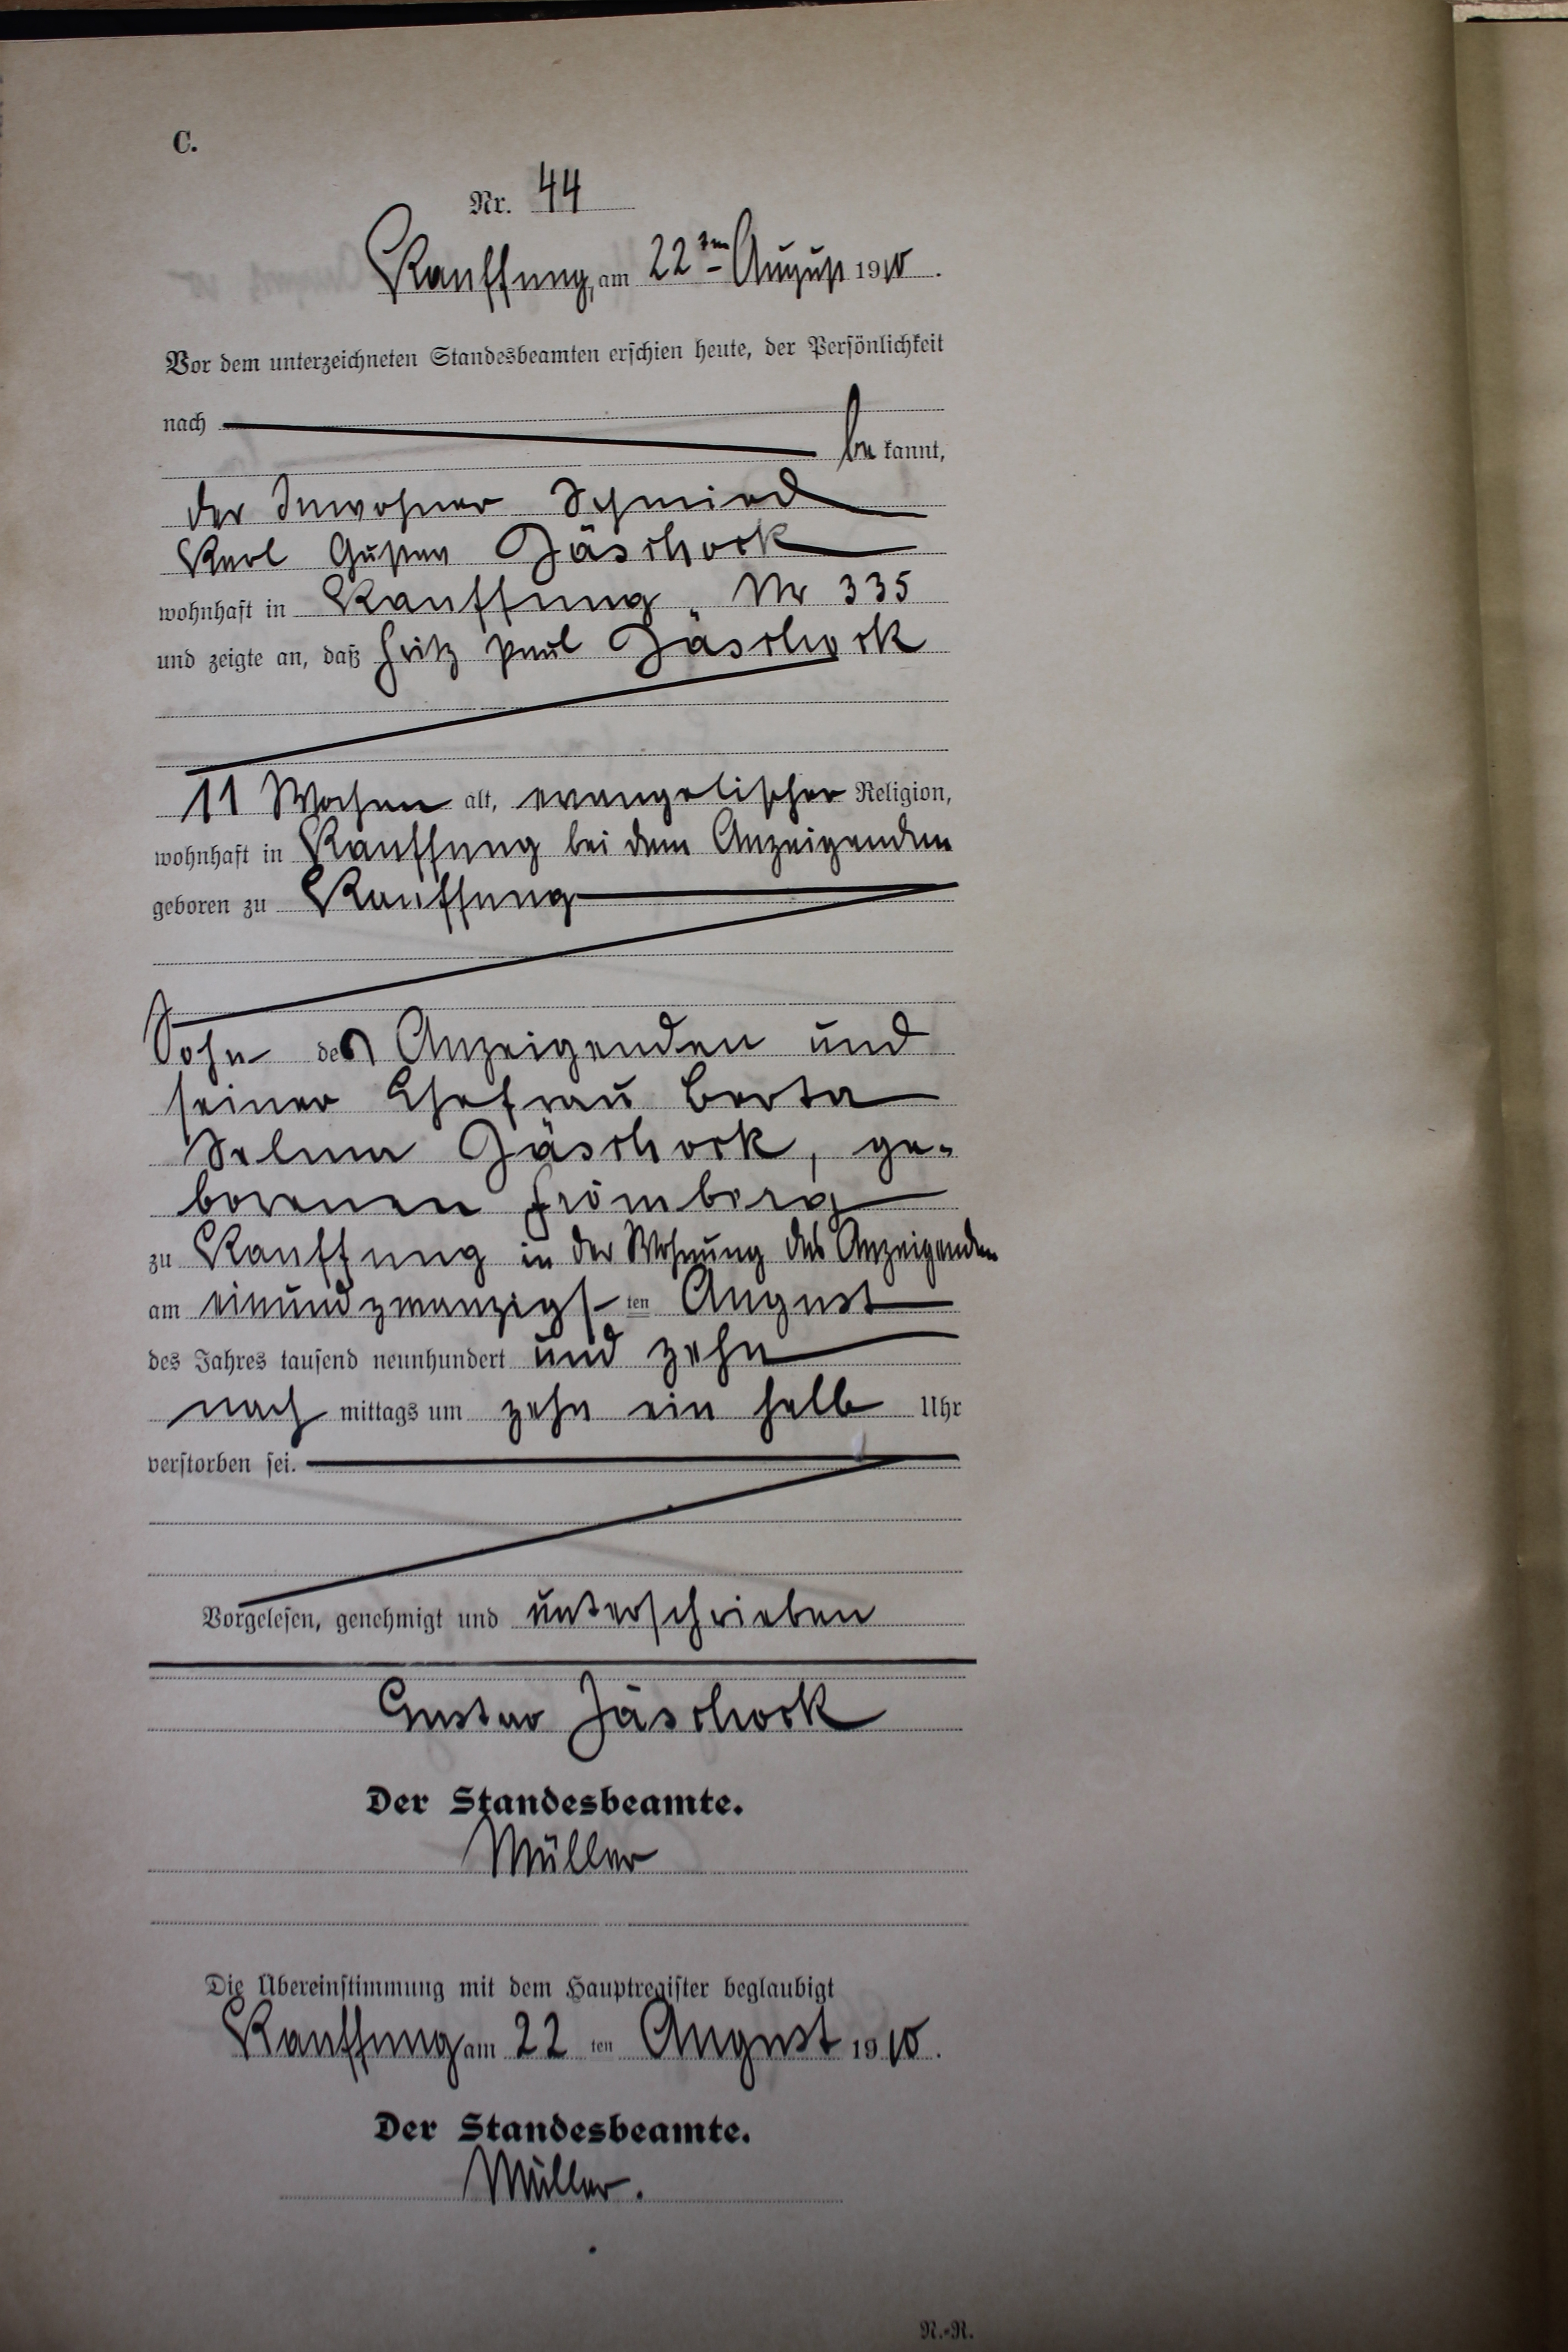 C.
Nr. 44
Kauffung, am 22ten August 1910.
Vor dem unterzeichneten Standesbeamten erschien heute, der Persönlichkeit
nach
be kannt,
der Inwohner Schmied
Karl Gustav Jäschock
wohnhaft in Kauffung, Nr 335
und zeigte an, daß Fritz Paul Jäschock
11 Wochen alt, evangelischer Religion,
wohnhaft in Kauffung bei dem Anzeigenden
geboren zu Kauffung
Sohn des Anzeigenden und
seiner Ehefrau Berta
Selma Jäschock, ge-
borenen Frömberg
zu Kauffung in der Wohnung des Anzeigenden
am einundzwanzigsten August
des Jahres tausend neunhundert und zehn
nach mittags um zehn ein halb Uhr
verstorben sei.
Vorgelesen, genehmigt und unterschrieben
Gustav Jäschock
Der Standesbeamte.
Müller
Die Übereinstimmung mit dem Hauptregister beglaubigt
Kauffung am 22 ten August 1910.
Der Standesbeamte.
Müller.
N.-R.